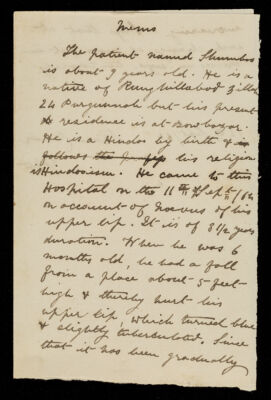 Memo
The patient named Shumboo
is about 9 years old. He is a
native of Zilla
24 Purgunnah but his present
residence is at Bowbazar.
He is a Hindoo by birth &
follows his religion
is Hindooism. He came to this
Hospital on the 11th Sept
on account of Naevus of his
upper lip. It is of 8 1/2 years
duration. When he was 6
months old, he had a fall
from a place about 5 feet
high & thereby hurt his
upper lip, which turned blue
& slightly tuberculated. Since
that it has been gradually